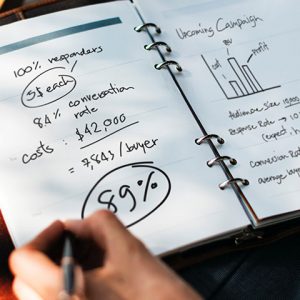 100% responders
5$ each
84% conversation
rate
costs: $42,000
= 7,843/buyer
89%
Upcoming Campaign
cost
rev
Profit
Audience size
Response Rate →
(expect,
Conversion Rate
average